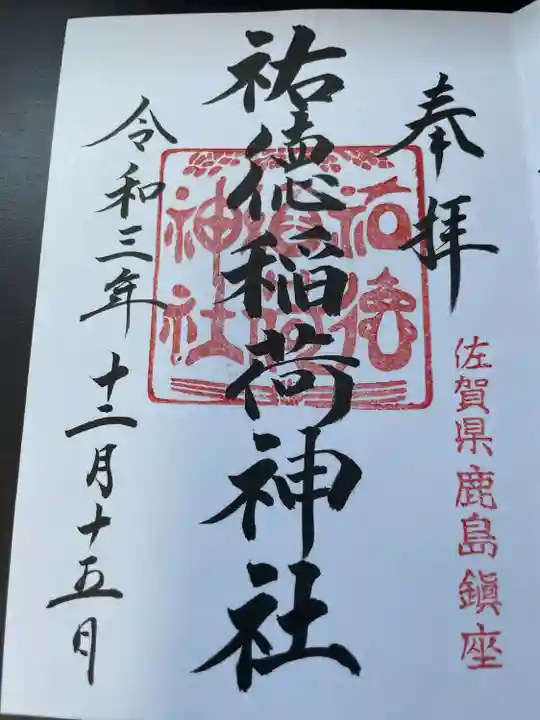 奉拝
佐賀県鹿島鎮座
祐徳稲荷神社
祐徳
稲荷
神社
令和三年十二月十五日